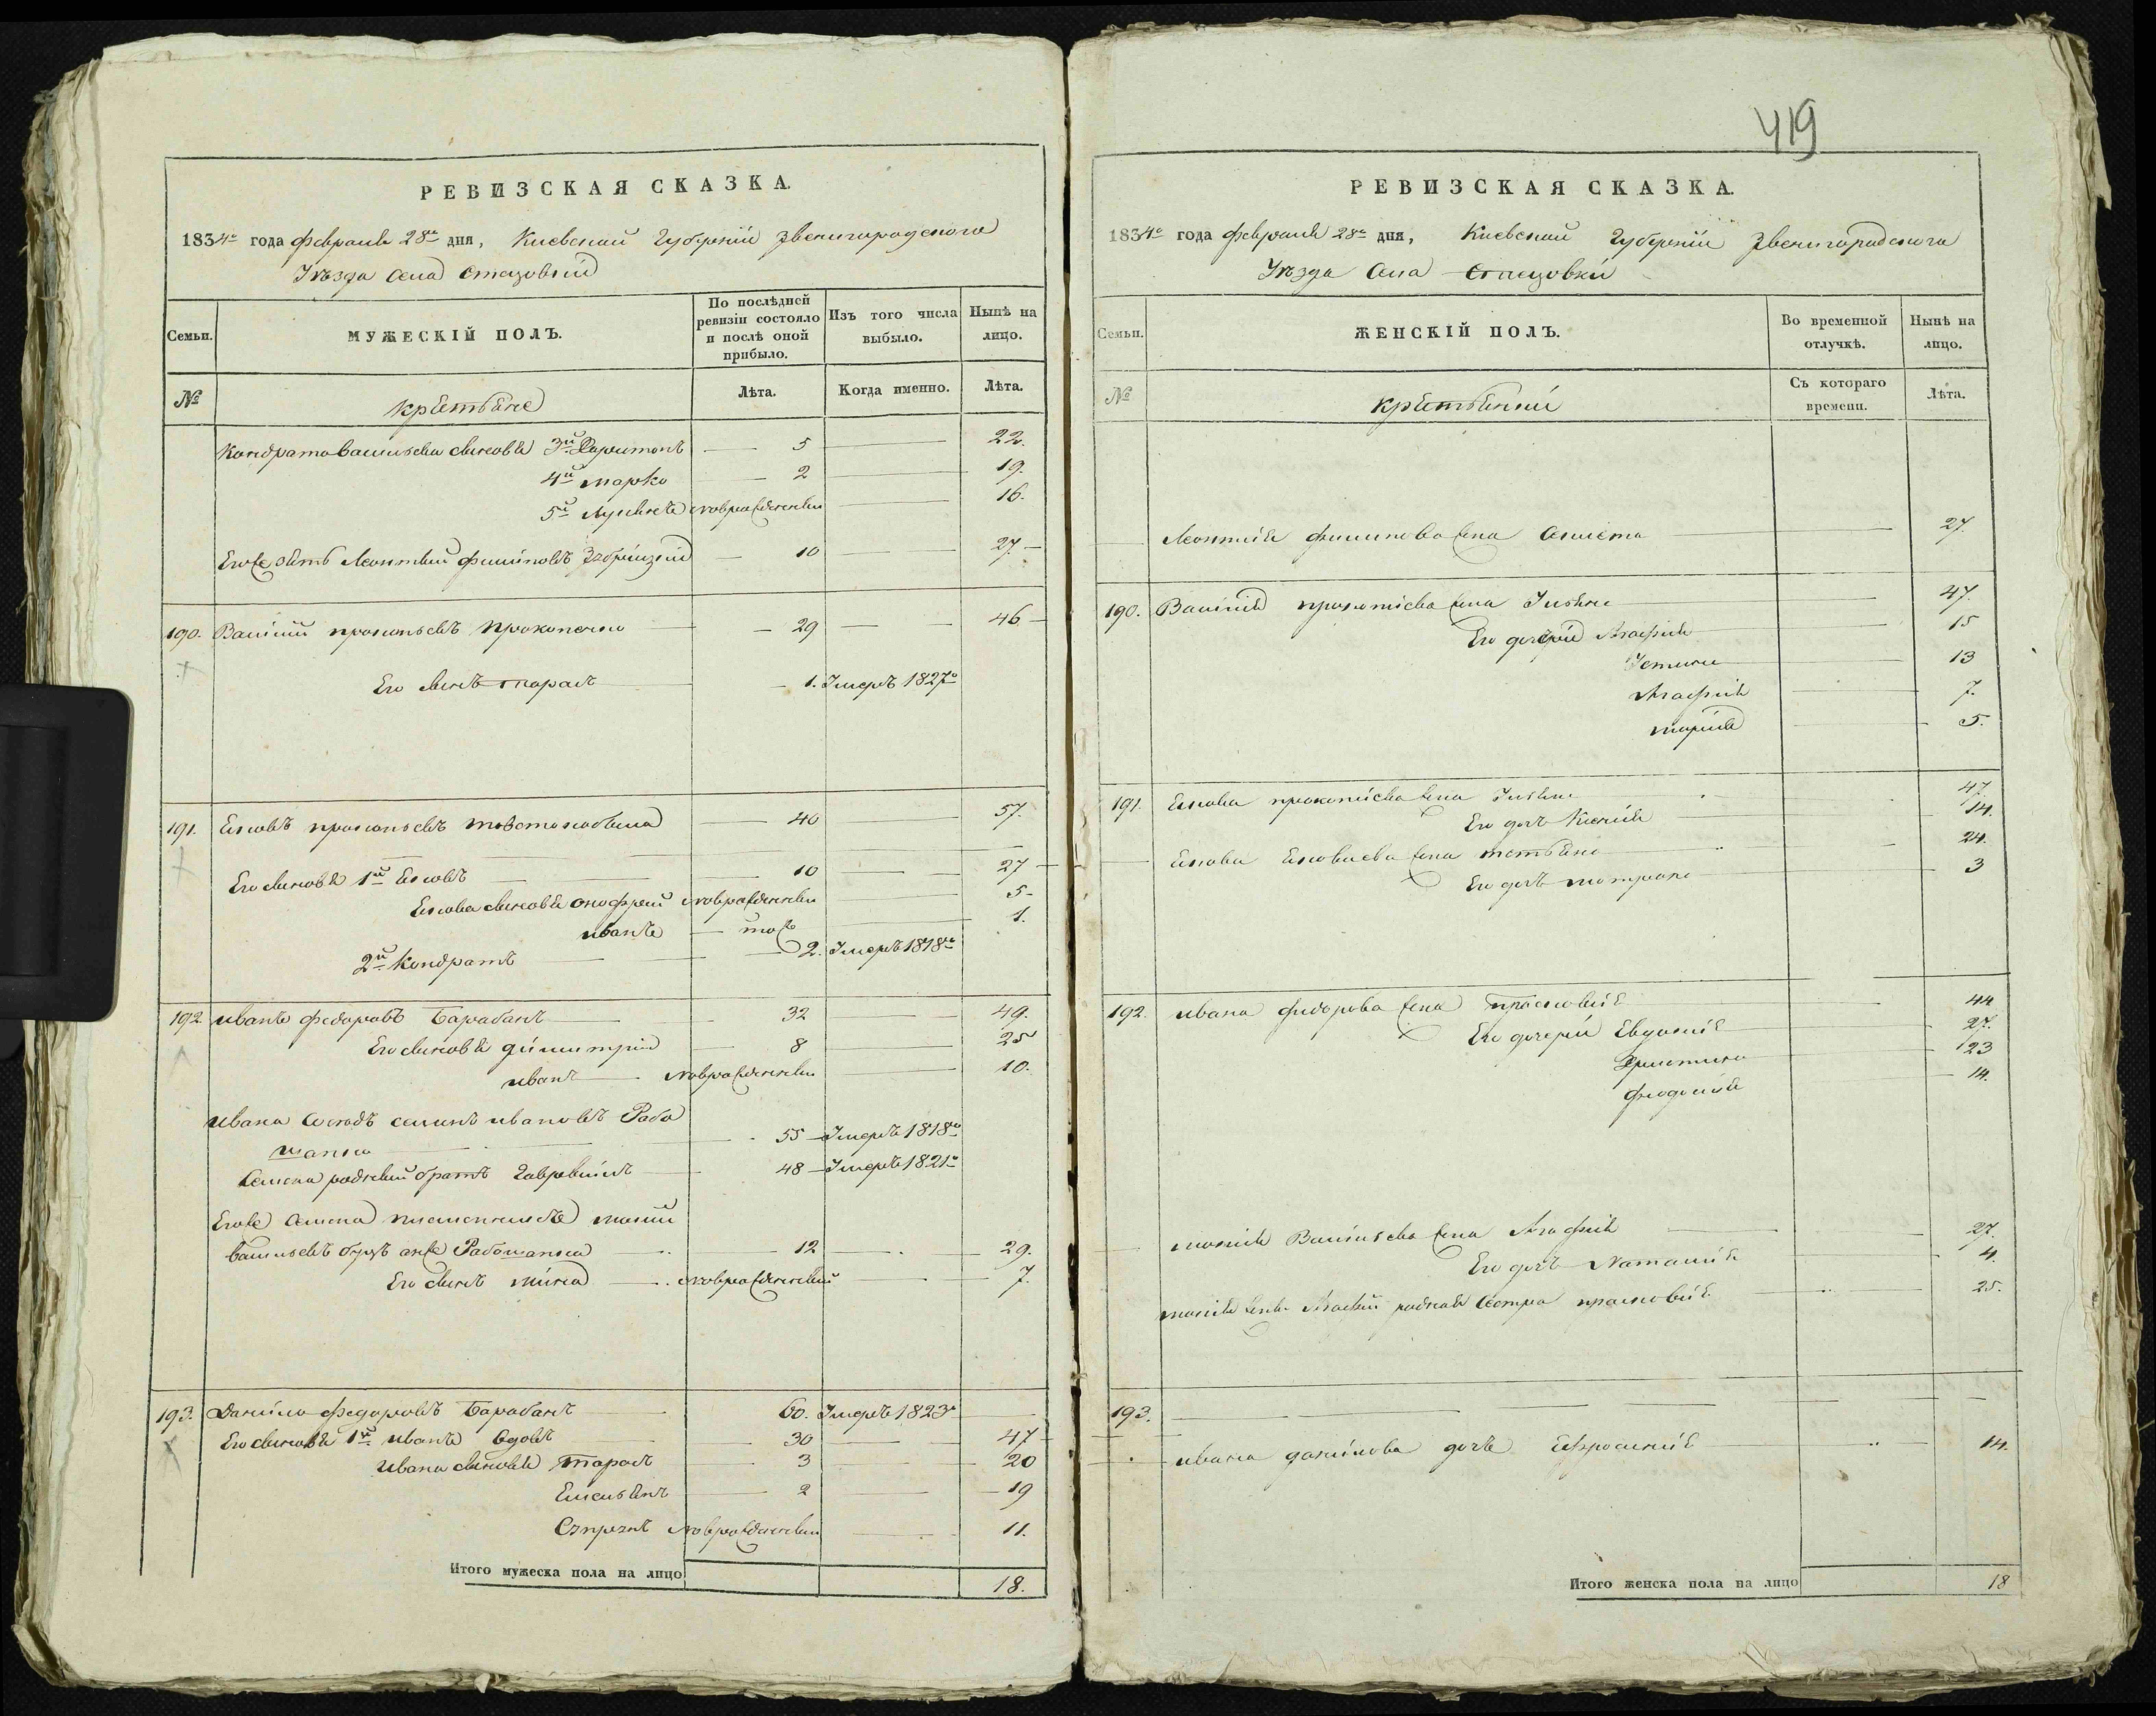 419
РЕВИЗСКАЯ СКАЗКА.
1834го года февраля 28го дня, Киевской Губернiи Звенигородского
Уѣзда Села Стецовки
Семьи.
МУЖЕСКІЙ ПОЛЪ.
По послѣдней ревизіи состояло и послѣ оной прибыло.
Изъ того числа выбыло.
Нынѣ на лицо.
№
Крестьяне
Лѣта.
Когда именно.
Лѣта.
Кондрата Васильева сыновья 3й Харитонъ 5 22.
4й Марко 2 19.
5й новрожденный 16.
Егоже зять Леонтiй Филиповъ 10 27
190. Василiй Прокопьевъ Прокопенко 29 46
Его сынъ Тарасъ 1. Умеръ 1827го
191. Яковъ Прокопьевъ 40 57.
Его сыновья 1й Яковъ 10 27
Якова сыновья Онофрей новрожденный 5
Иванъ тож 1.
2й Кондратъ 2. Умеръ 1818го
192 Иванъ Федоровъ Барабанъ 32 49.
Его сыновья Димитрiй 8 25
Иванъ новрожденный 10.
Ивана Сосѣдъ Семенъ Ивановъ Рабо
шапка 55 Умеръ 1818го
Семена родный братъ Гаврiилъ 48 Умеръ 1821го
Егоже Семена племенникъ Мосiй
Васильевъ онъ же Рабошапка 12 29.
Его сынъ Мина новрожденный 7.
193. Данило Федоровъ Барабанъ 60. Умеръ 1823го
Его сыновья 1й Иванъ вдовъ 30 47
Ивана сыновья Тарасъ 3 20
Емельянъ 2 19
новрожденный 11.
Итого мужеска пола на лицо 18.
РЕВИЗСКАЯ СКАЗКА.
1834го года февраля 28го дня, Киевской Губернiи Звенигородского
Уѣзда Села Стецовки
Семьи.
ЖЕНСКІЙ ПОЛЪ.
Во временной отлучкѣ.
Нынѣ на лицо.
№
Крестьянки
Съ котораго времени.
Лѣта.
Леонтiя Филипова жена 27.
190. Василiя Прокопiева жена Ульяна 47.
Его дочери Агафiя 15
Устина 13
Агафiя 7.
Марiя 5.
191. Якова Прокопiева жена Ульяна 47.
Его дочь Ксенiя 14.
Якова Яковлева жена Татьяна 24.
Его дочь Мотрона 3
192. Ивана Федорова жена Прасковiя 44
Его дочери Евдокiя 27.
Христина 23
Феодосiя 14.
Мосiя Васильева жена Агафiя 27.
Его дочь Наталiя 4.
Мосiя жены Агафiи родная Сестра Прасковiя 25.
193.
Ивана Данилова дочь Ефросинiя 14.
Итого женска пола на лицо 18